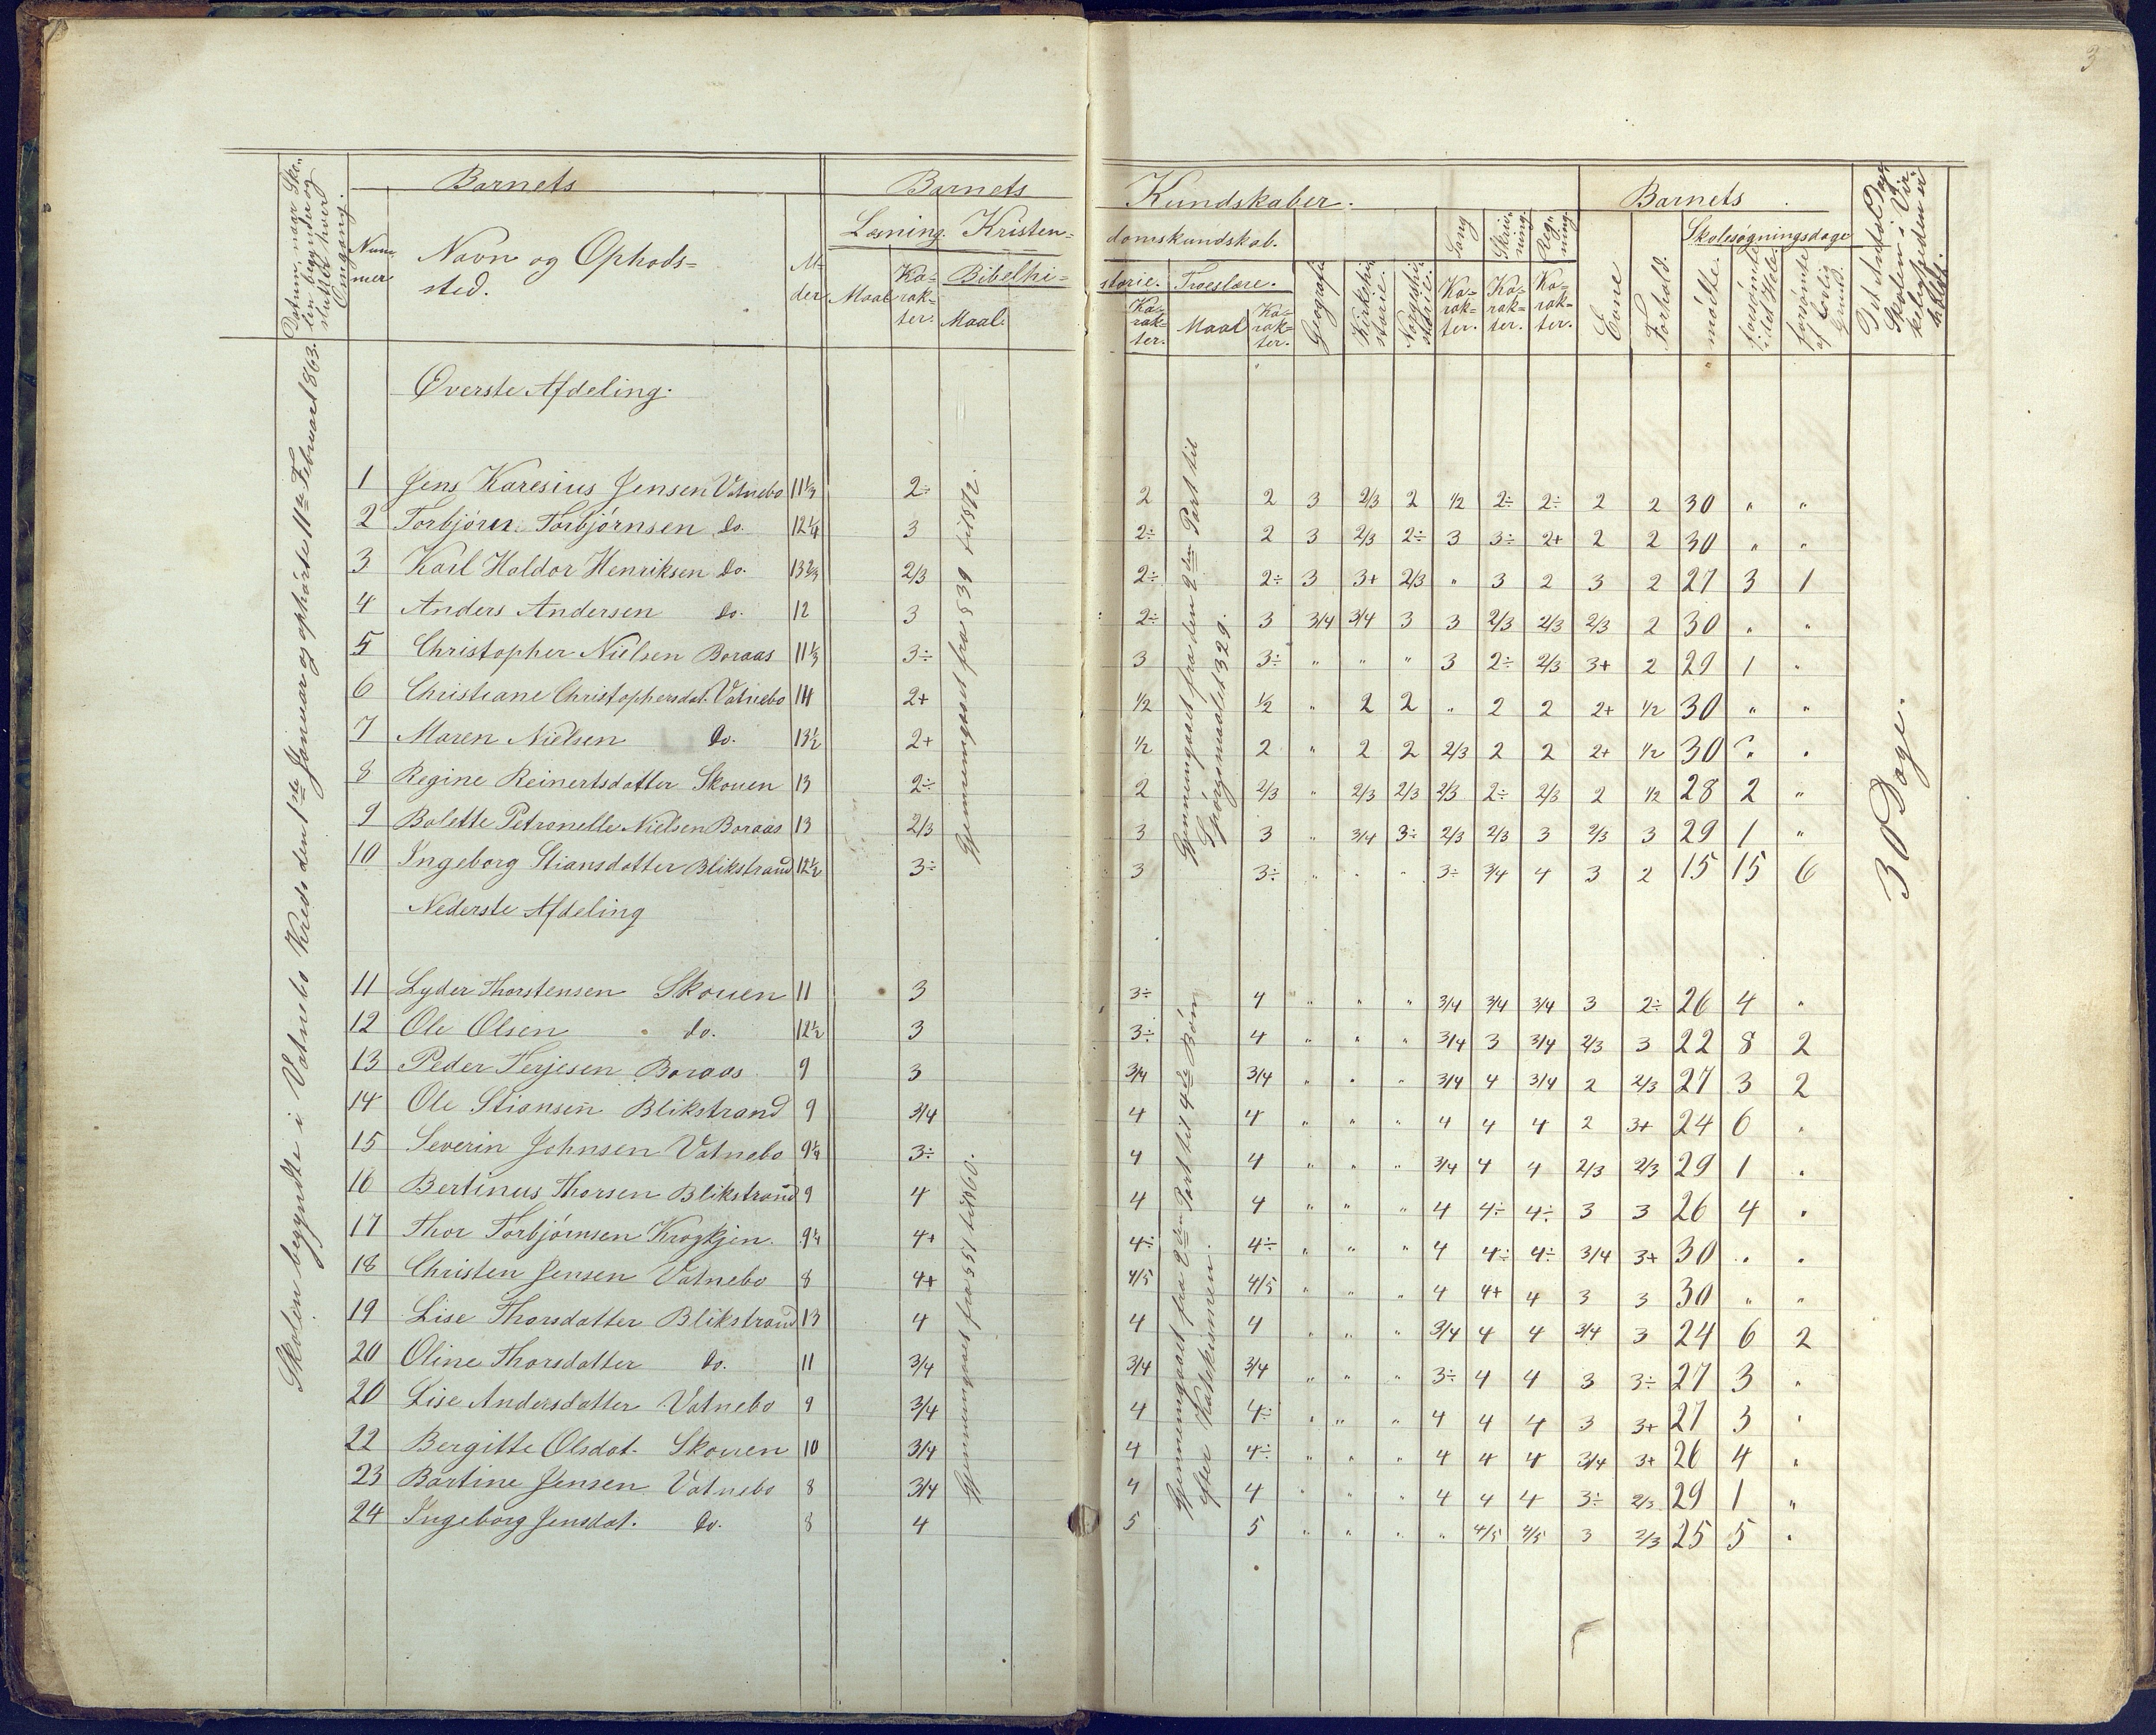 3
Datum, naar Sko-
len begynder og
slutter hver
Omgang.
Num-
mer
Barnets
Navn og Opholds-
sted.
Al-
der
Barnets
Kundskaber.
Læsning.
Kristen-
domskundskab.
Maal
Ka-
rak-
ter.
Bibelhi-
storie.
Maal.
Ka-
rak-
ter.
Troeslære.
Maal
Ka-
rak-
ter.
Geografi
Kirkehi-
storie.
Norgeshi-
storie.
Sang
Ka-
rak-
ter.
Skriv-
ning.
Ka-
rak-
ter.
Reg-
ning.
Ka-
rak-
ter.
Barnets
Evne
Forhold.
Skolesøgningsdage
mødte.
forsømte
i det Hele.
forsømte
af lovlig
Grund.
Det Antal Dage
Skolen i Vir-
keligheden er
holdt.
Skolen begyndte i Vatnebo Kreds den 1ste Januar og ophørte 11te Februar 1863.
Øverste Afdeling.
Gjennemgaaet fra § 39 til § 72.
Gjennemgaaet fra den 2den Part til
Spørgsmaalet 329.
30 Dage.
1 Jens Karesius Jensen Vatnebo 11 1/3 2÷ 2 2 3 2/3 2 1/2 2÷ 2÷ 2 2 30 " "
2 Torbjörn Torbjörnsen do. 12 1/4 3 2÷ 2 3 2/3 2÷ 3 3÷ 2+ 2 2 30 " "
3 Karl Haldor Henriksen do. 13 2/3 2/3 2÷ 2÷ 3 3+ 2/3 " 3 2 3 2 27 3 1
4 Anders Andersen do. 12 3 2÷ 3 3/4 3/4 3 3 2/3 2/3 2/3 2 30 " "
5 Christopher Nielsen Boraas 11 1/3 3÷ 3 3÷ " " " 3 2÷ 2/3 3+ 2 29 1 "
6 Christiane Christophersdat. Vatnebo 14 2+ 1/2 1/2 " 2 2 " 2 2 2+ 1/2 30 " "
7 Maren Nielsen do. 13 1/2 2+ 1/2 2 " 2 2 2/3 2 2 2+ 1/2 30 " "
8 Regine Reinertsdatter Skouen 13 2÷ 2 2/3 " 2/3 2/3 2/3 2÷ 2/3 2 1/2 28 2 "
9 Bolette Petronelle Nielsen Boraas 13 2/3 3 3 " 3/4 3÷ 2/3 2/3 3 2/3 3 29 1 "
10 Ingeborg Stiansdatter Blikstrand 12 1/2 3÷ 3 3÷ " " " 3÷ 3/4 4 3 2 15 15 6
Nederste Afdeling
Gjennemgaaet fra § 51 til § 60.
Gjennemgaaet fra 2den Part til 4de Bön
efter Katekismen.
11 Lyder Thorstensen Skouen 11 3 3÷ 4 " " " 3/4 3/4 3/4 3 2÷ 26 4 "
12 Ole Olsen do. 12 1/2 3 3÷ 4 " " " 3/4 3 3/4 2/3 3 22 8 2
13 Peder Terjesen Boraas 9 3 3/4 3/4 " " " 3/4 4 3/4 2 2/3 27 3 2
14 Ole Stiansen Blikstrand 9 3/4 4 4 " " " 4 4 4 2 3+ 24 6 "
15 Severin Johnsen Vatnebo 9 1/4 3÷ 4 4 " " " 3/4 4 4 2/3 2/3 29 1 "
16 Bertinus Thorsen Blikstrand 9 4 4 4 " " " 4 4÷ 4÷ 3 3 26 4 "
17 Thor Torbjörnsen Krogkjen. 9 1/4 4+ 4÷ 4÷ " " " 4 4÷ 4÷ 3/4 3+ 30 " "
18 Christen Jensen Vatnebo 8 4+ 4/5 4/5 " " " 4 4+ 4 3 3 30 " "
19 Lise Thorsdatter Blikstrand 13 4 4 4 " " " 3/4 4 4 3/4 3 24 6 2
20 Oline Thorsdatter do. 11 3/4 3/4 3/4 " " " 3÷ 4 4 3 3÷ 27 3 "
20 Lise Andersdatter Vatnebo 9 3/4 4 4÷ " " " 4 4 4 3 3+ 27 3 "
22 Bergitte Olsdat. Skouen 10 3/4 4 4÷ " " " 4 4 4 3/4 3+ 26 4 "
23 Bartine Jensen Vatnebo 8 3/4 4 4 " " " 4 4 4 3÷ 2/3 29 1 "
24 Ingeborg Jensdat. do. 8 4 5 5 " " " " 4/5 4/5 3 2/3 25 5 "